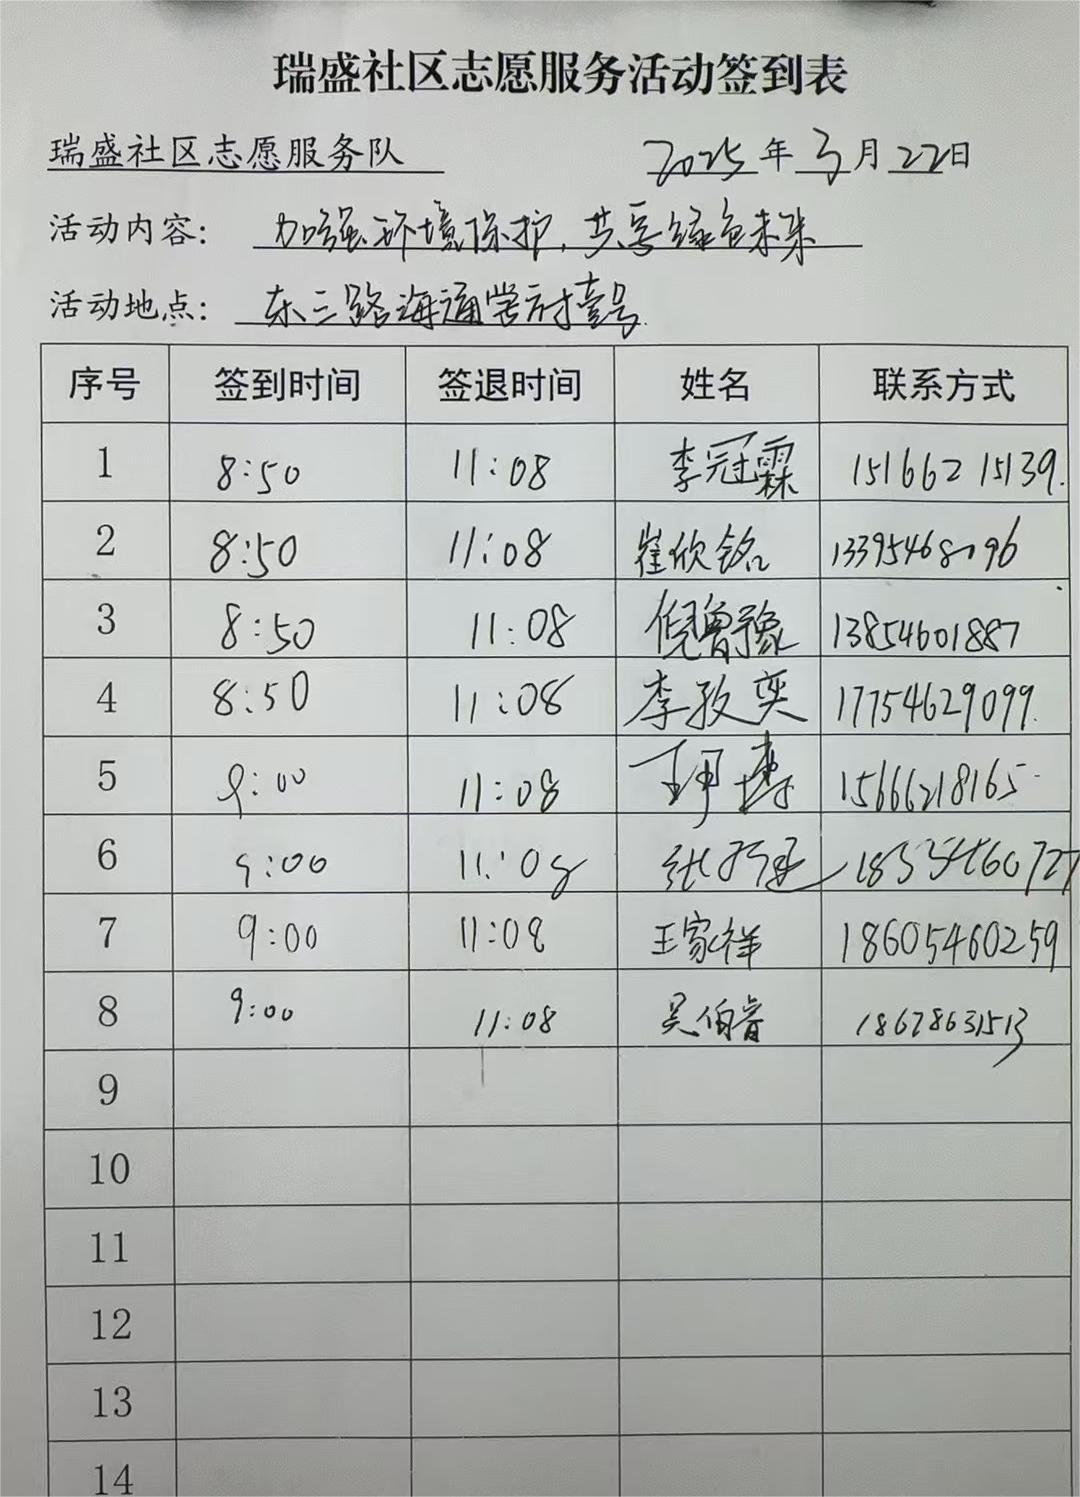 瑞盛社区志愿服务活动签到表
瑞盛社区志愿服务队 2025年3月22日
活动内容: 加强环境保护,共享绿色未来
活动地点: 东三路海通学府壹号.
序号 签到时间 签退时间 姓名 联系方式
1 8:50 11:08 李冠霖 15166215139.
2 8:50 11:08 崔欣铭 13395468096
3 8:50 11:08 倪曾豫 13854601887
4 8:50 11:08 李孜奕 17754629099.
5 9:00 11:08 15666218165
6 9:00 11:08 18354660727
7 9:00 11:08 王家祥 18605460259
8 9:00 11:08 吴伯睿 18678631513
9
10
11
12
13
14